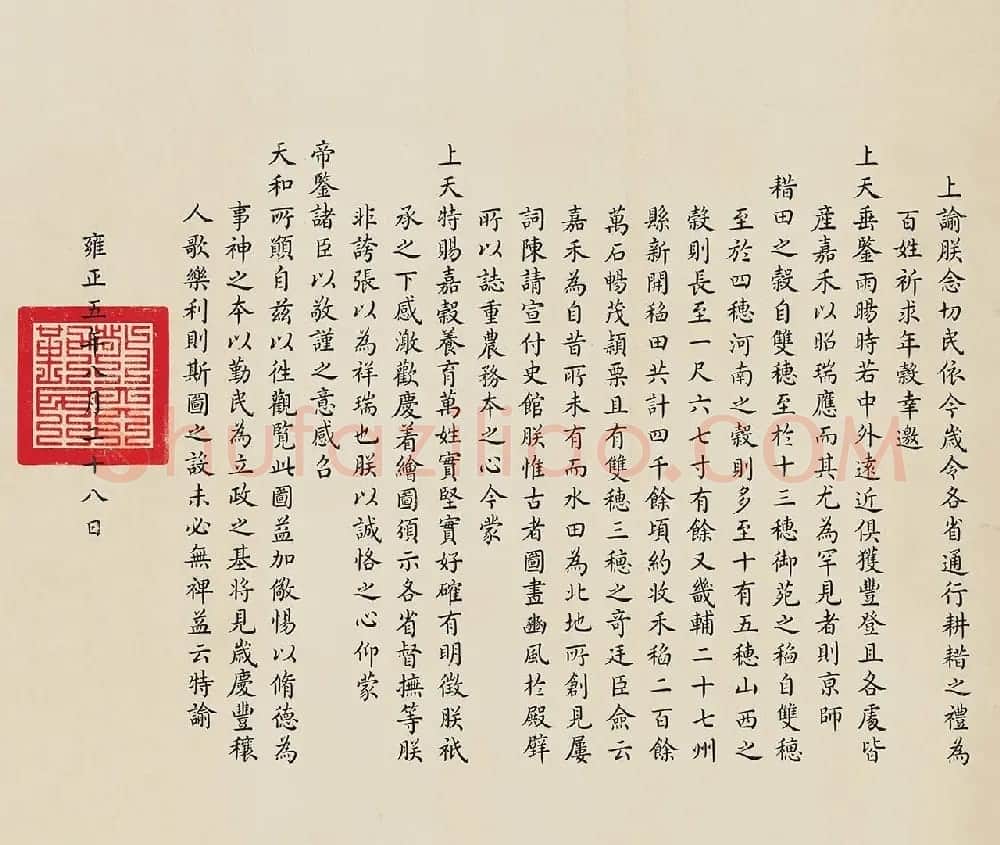 上諭朕念切民依今歲令各省通行耕耤之禮為
百姓祈求年穀幸邀
上天垂鑒雨暘時若中外遠近俱獲豐登且各處皆
產嘉禾以昭瑞應而其尤為罕見者則京師
耤田之穀自雙穗至於十三穗御苑之稻自雙穗
至於四穗河南之穀則多至十有五穗山西之
穀則長至一尺六七寸有餘又畿輔二十七州
縣新開稻田共計四千餘頃約收禾稻二百餘
萬石暢茂穎栗且有雙穗三穗之奇廷臣僉云
嘉禾為自昔所未有而水田為北地所創見屢
詞陳請宣付史館朕惟古者圖畫豳風於殿壁
所以誌重農務本之心今蒙
上天特賜嘉穀養育萬姓實堅實好確有明徵朕祇
承之下感激歡慶着繪圖頒示各省督撫等朕
非誇張以為祥瑞也朕以誠恪之心仰蒙
帝鑒諸臣以敬謹之意感召
天和所願自茲以徃觀覽此圖益加儆惕以脩德為
事神之本以勤民為立政之基將見歲慶豐穰
人歌樂利則斯圖之設未必無裨益云特諭
雍正五年八月二十八日
shufaziliao.COM